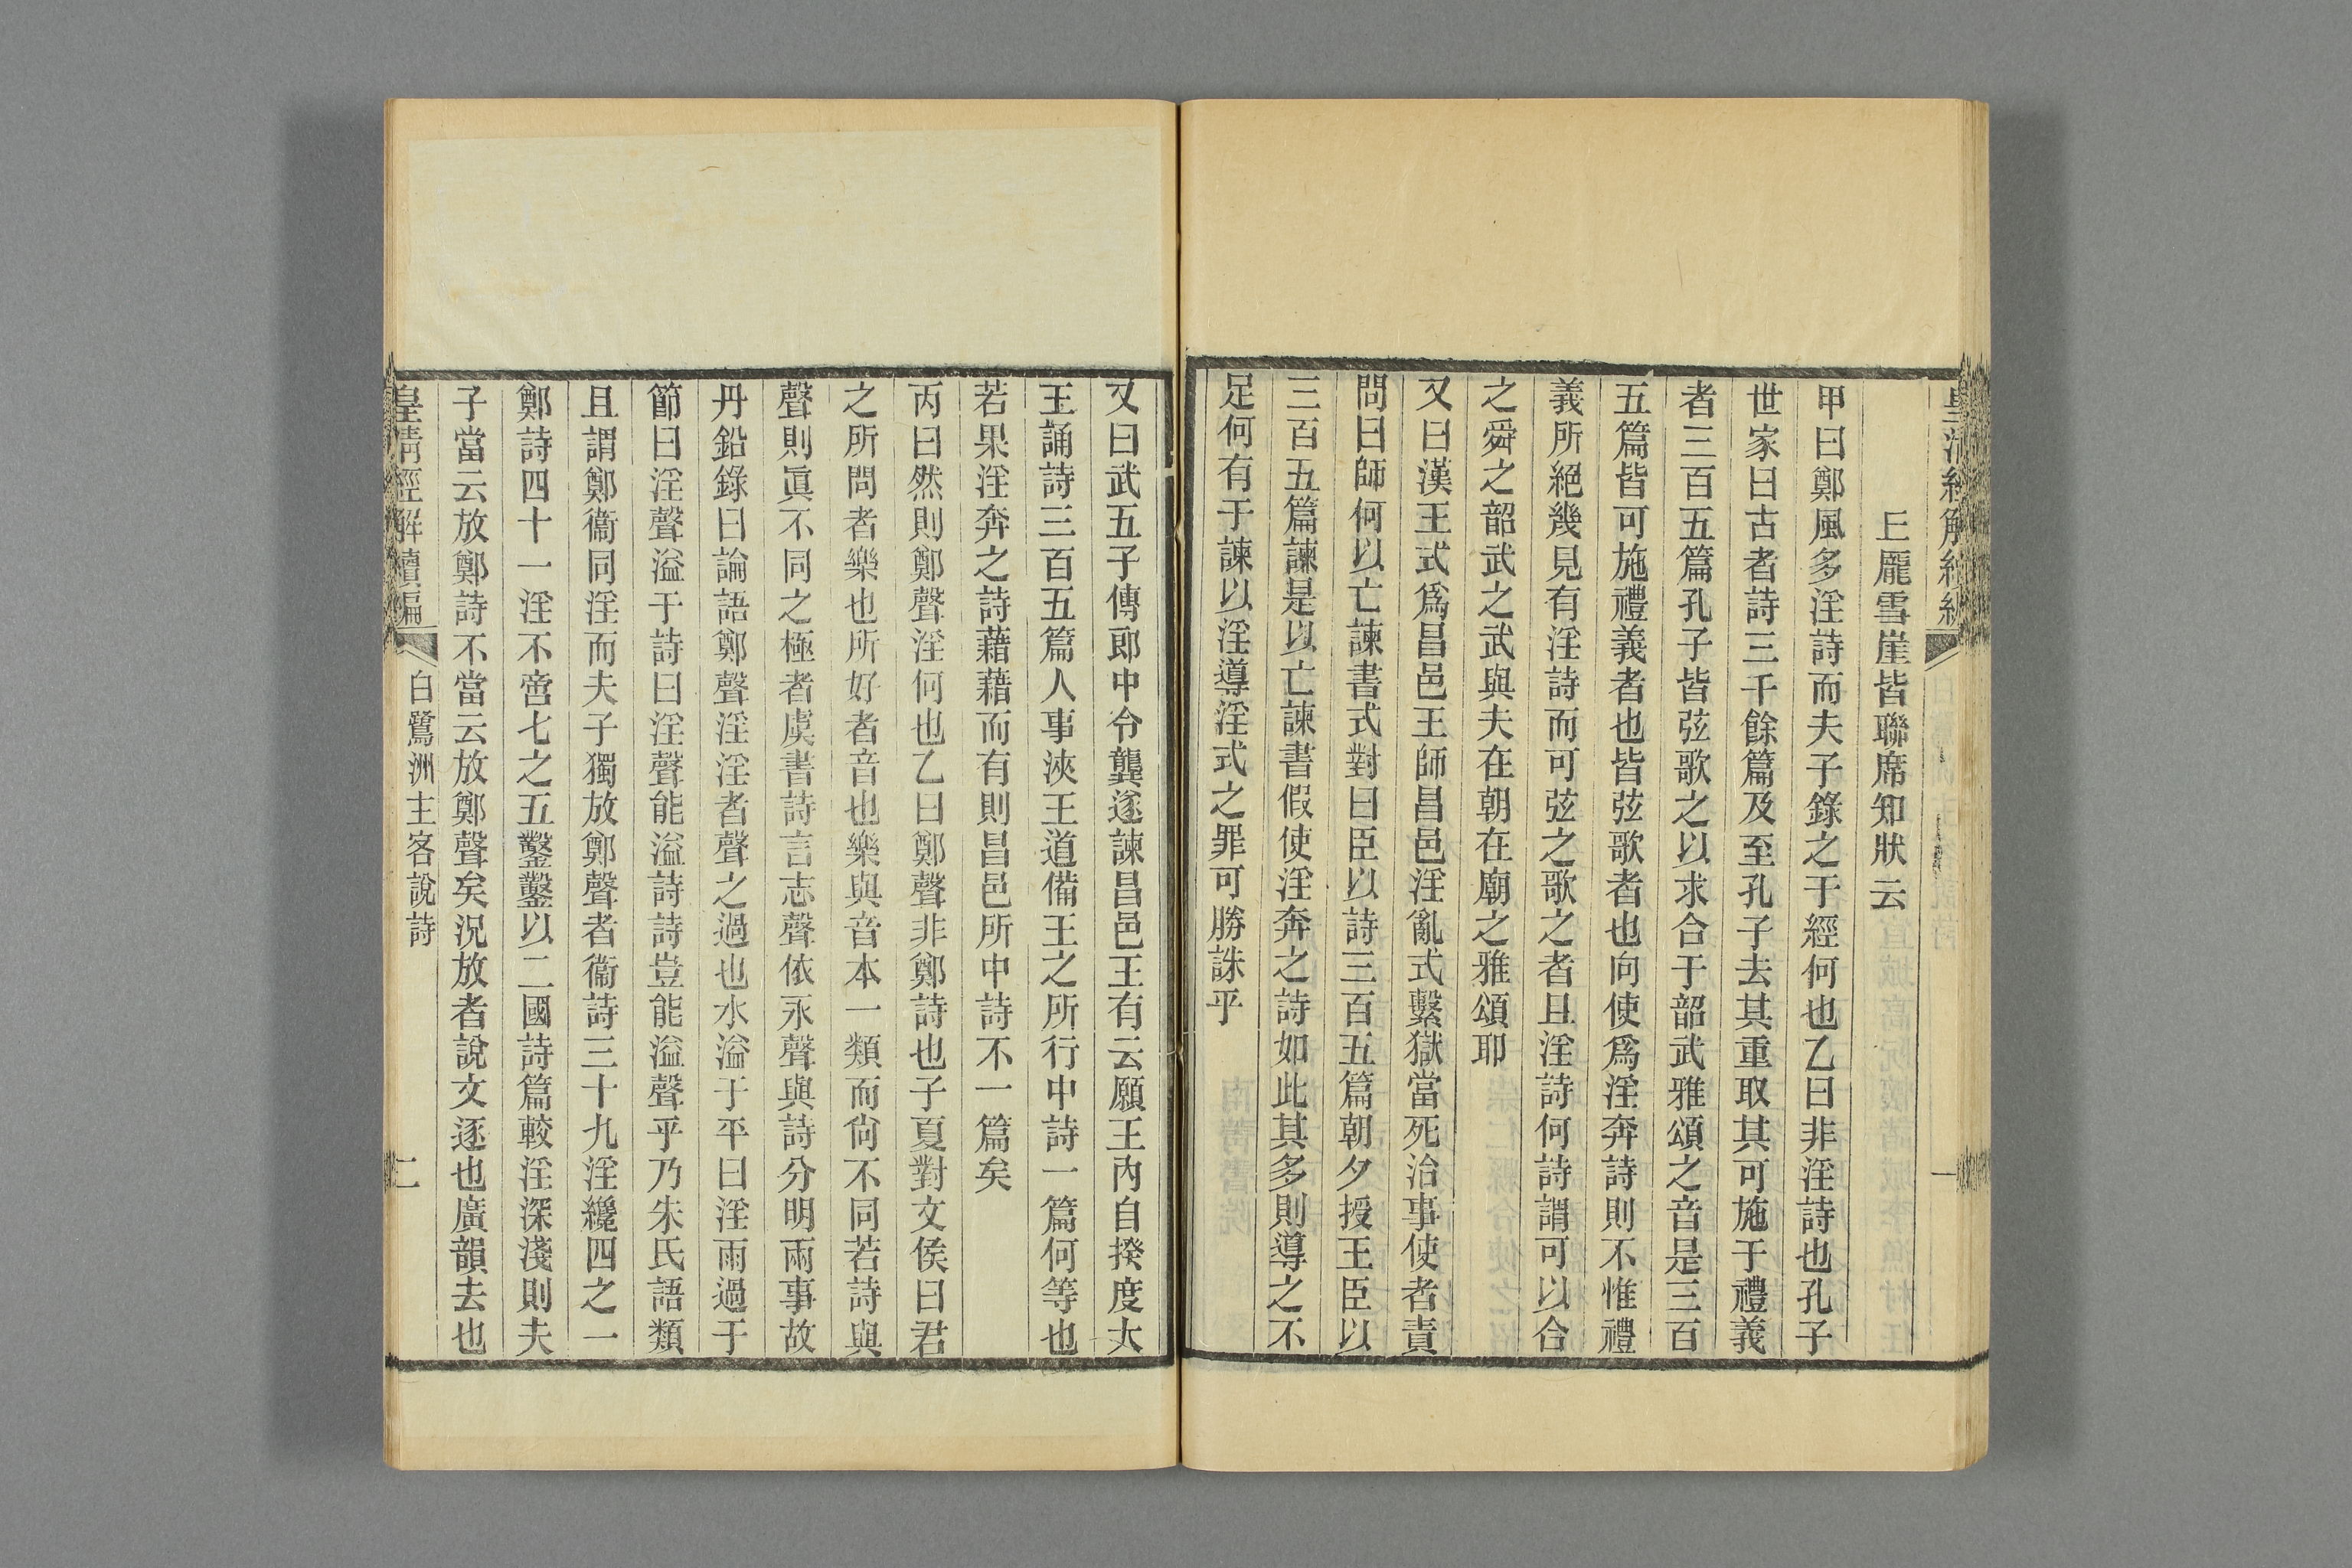 皇清經解續編
一
上龎雪崖皆聯席知狀云
甲曰鄭風多淫詩而夫子錄之于經何也乙曰非淫詩也孔子
世家曰古者詩三千餘篇及至孔子去其重取其可施于禮義
者三百五篇孔子皆弦歌之以求合于韶武雅頌之音是三百
五篇皆可施禮義者也皆弦歌者也向使爲淫奔詩則不惟禮
義所絕幾見有淫詩而可弦之歌之者且淫詩何詩謂可以合
之舜之韶武之武與夫在朝在廟之雅頌耶
又曰漢王式爲昌邑王師昌邑淫亂式繫獄當死治事使者責
問曰師何以亡諫書式對曰臣以詩三百五篇朝夕授王臣以
三百五篇諫是以亡諫書假使淫奔之詩如此其多則導之不
足何有于諫以淫導淫式之罪可勝誅乎
又曰武五子傳郎中令龔遂諫昌邑王有云願王內自揆度大
王誦詩三百五篇人事浹王道備王之所行中詩一篇何等也
若果淫奔之詩藉藉而有則昌邑所中詩不一篇矣
丙曰然則鄭聲淫何也乙曰鄭聲非鄭詩也子夏對文侯曰君
之所問者樂也所好者音也樂與音本一類而尙不同若詩與
聲則眞不同之極者虞書詩言志聲依永聲與詩分明兩事故
丹鉛錄曰論語鄭聲淫淫者聲之過也水溢于平曰淫雨過于
節曰淫聲溢于詩曰淫聲能溢詩詩豈能溢聲乎乃朱氏語類
且謂鄭衞同淫而夫子獨放鄭聲者衞詩三十九淫纔四之一
鄭詩四十一淫不啻七之五鑿鑿以二國詩篇較淫深淺則夫
子當云放鄭詩不當云放鄭聲矣況放者說文逐也廣韻去也
皇清經解續編
白鷺洲主客說詩
二